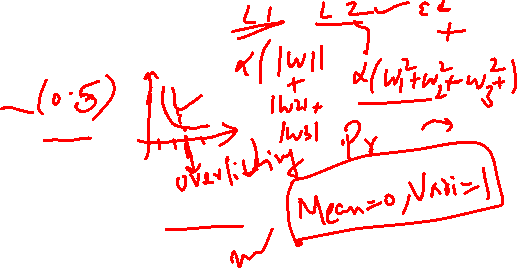 L1 L2 ε2
+
α(|w1| α(w1²+w2²+w3²+
+
|w2|+
|w3|
(0.5)
overfitting
Pr
Mean=0, Vari=1